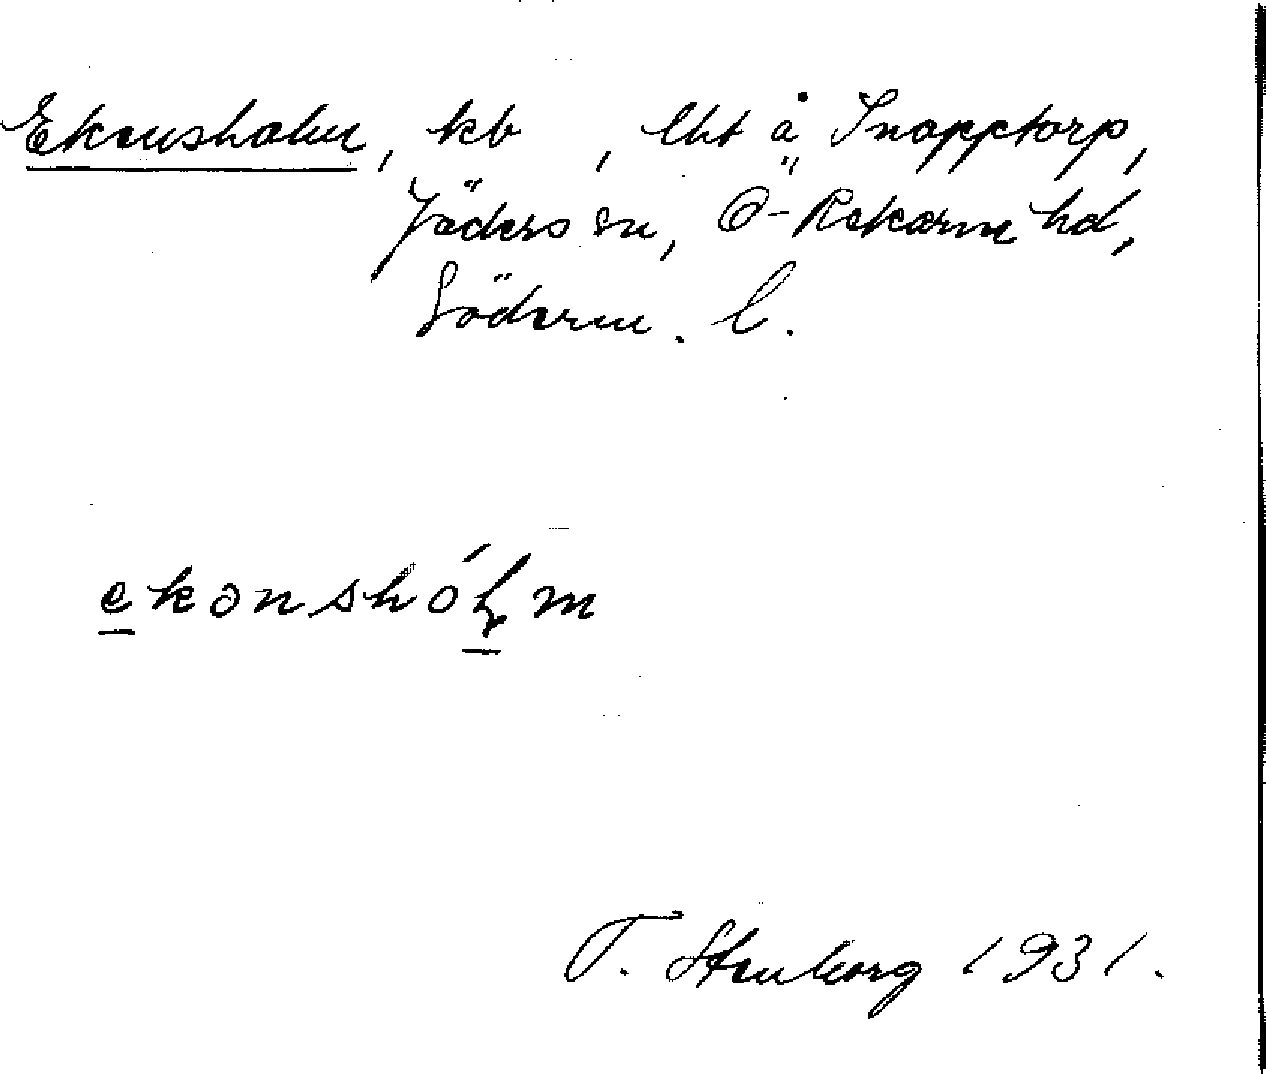 Ekensholm, kb , lht å Snopptorp,
Jäders sn, Ö-Rekarne hd,
Söderm. l.
ekənshól̥m
T. Stenborg 1931.